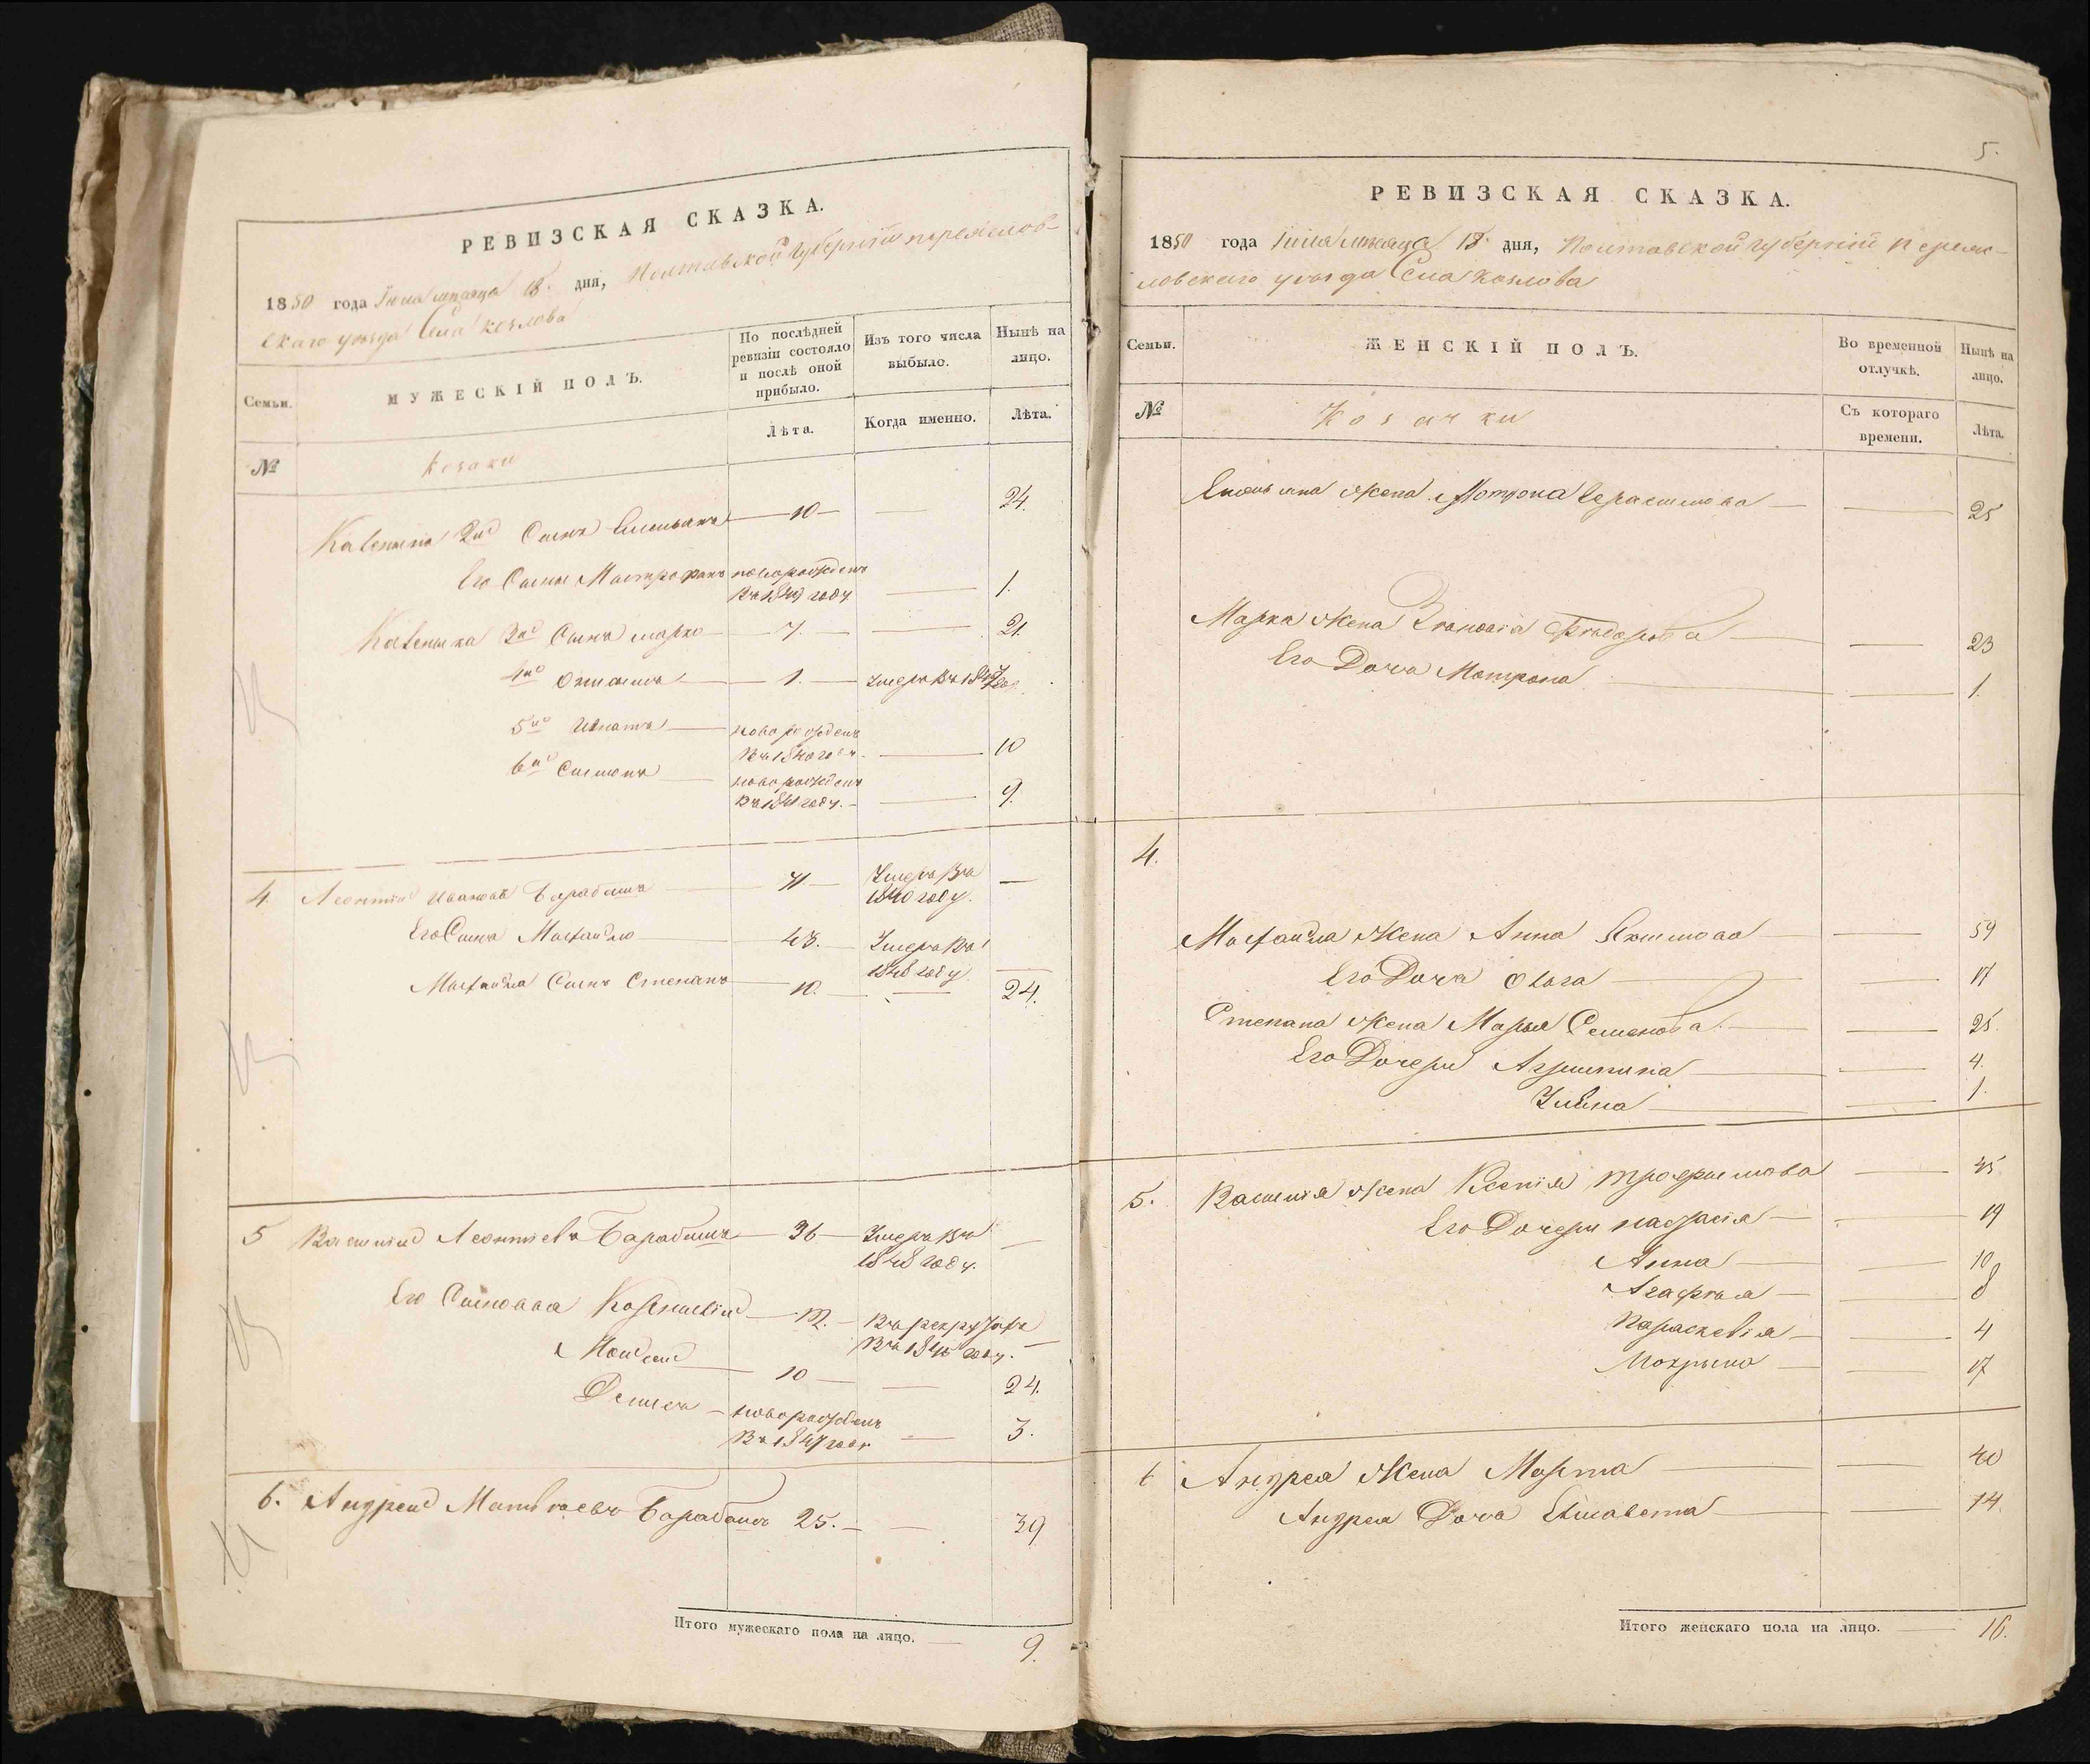 РЕВИЗСКАЯ СКАЗКА.
1850 года Іюня мѣсяца 18. дня, Полтавской Губерніи переяслов-
скаго уѣзда Села Козлова
Семьи.
МУЖЕСКІЙ ПОЛЪ.
По послѣдней
ревизіи состояло
и послѣ оной
прибыло.
Изъ того числа
выбыло.
Нынѣ на
лицо.
Лѣта.
Когда именно.
Лѣта.
№
Козаки
2й Сынъ Емельянъ 10 24.
Его Сынъ новорожденъ
въ 1849 году 1.
3й Сынъ марко 7. 21.
4й Онисимъ 1. Умеръ въ
5й Игнатъ новорожденъ
въ 1840 году 10
6й Симонъ новорожденъ
въ 1841 году. 9.
4. Леонтій Ивановъ Барабашъ 71. Умеръ въ
1840 году.
Его Сынъ Михайло 43. Умеръ въ
1848 году
Михайла Сынъ Степанъ 10. 24.
5 Василій Леонтіевъ Барабашъ 36 Умеръ въ
1848 году.
Его Сыновья въ рекрутахъ
Моисей 10 24.
Демидъ новорожденъ
въ 1847 году 3.
6. Андрей Матвѣевъ Барабашъ 25. 39
Итого мужескаго пола на лицо. 9.
5.
РЕВИЗСКАЯ СКАЗКА.
1850 года Іюня мѣсяца 18. дня, Полтавской губерніи Переяс-
ловскаго уѣзда Села Козлова
Семьи.
ЖЕНСКІЙ ПОЛЪ.
Во временной
отлучкѣ.
Нынѣ на
лицо.
№
Козачки
Съ котораго
времени.
Лѣта.
Емельяна Жена Мотрона Герасимова 25
Марка Жена Зѣновія Ѳѣдорова 23
Его Дочь Мотрона 1.
4.
Михайла Жена Анна 59
Его Дочь Ольга 17
Степана Жена Марья Семенова. 25.
Его Дочери Агрипина 4.
Ульяна 1.
5. Василія Жена Ксенія трофимова 45
Его Дочери настасія 19
Анна 10
Агафія 8
Параскевія 4
Мокрына 17
6 Андрея Жена Марѳа 40
Андрея Дочь Елисавета 14.
Итого женскаго пола на лицо. 16.